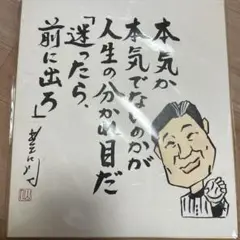 本気か
本気でないのかが
人生の分かれ目だ
「迷ったら、
前に出ろ」